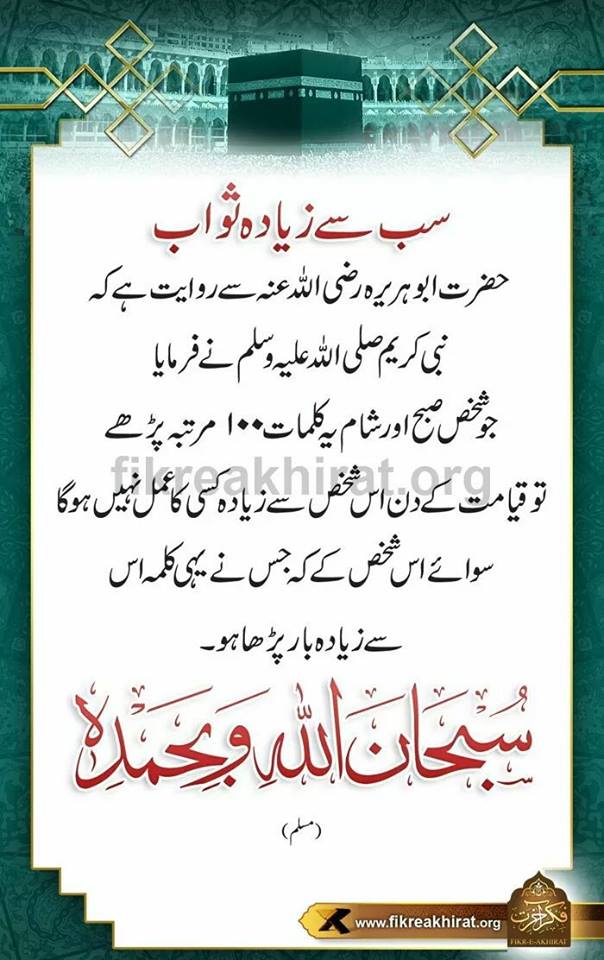 سب سے زیادہ ثواب
حضرت ابوہریرہ رضی اللہ عنہ سے روایت ہے کہ
نبی کریم صلی اللہ علیہ وسلم نے فرمایا
جو شخص صبح اور شام یہ کلمات ۱۰۰ مرتبہ پڑھے
fikreakhirat.org
تو قیامت کے دن اس شخص سے زیادہ کسی کا عمل نہیں ہوگا
سوائے اس شخص کے کہ جس نے یہی کلمہ اس
سے زیادہ بار پڑھا ہو۔
سُبْحَانَ اللهِ وَبِحَمْدِهِ
(مسلم)
www.fikreakhirat.org
فکر آخرت
FIKR-E-AKHIRAT